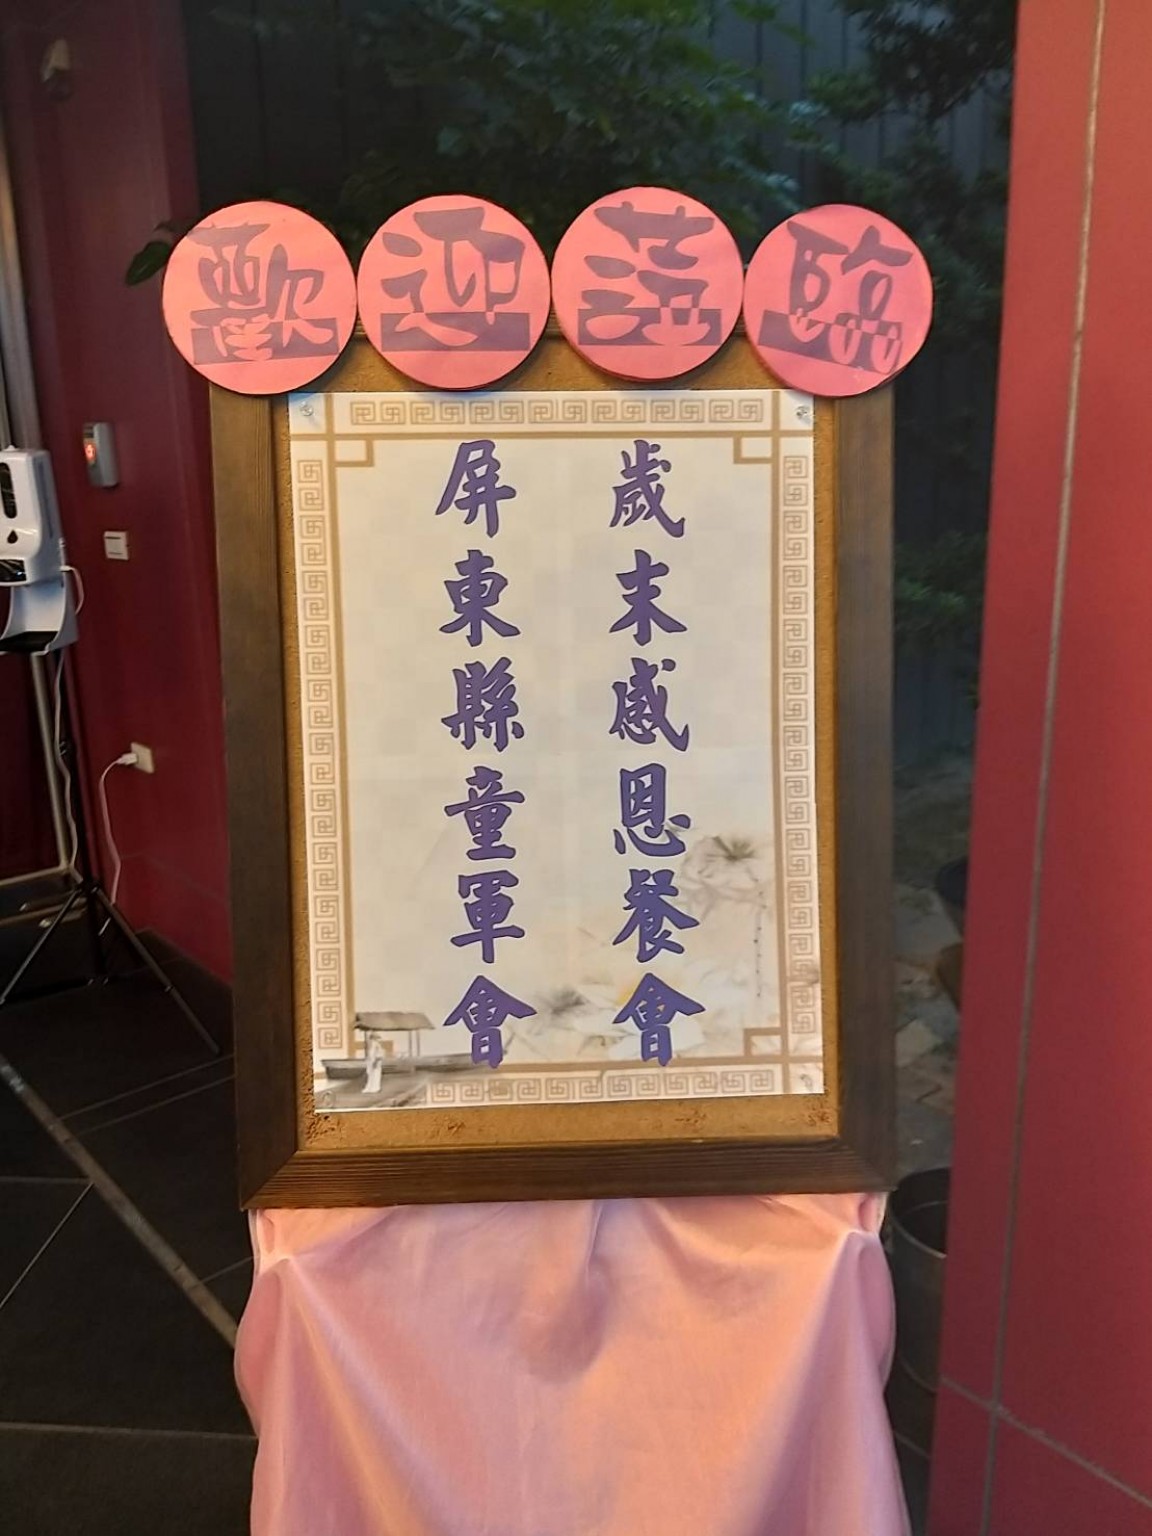 歡迎蒞臨
歲末感恩餐會
屏東縣童軍會